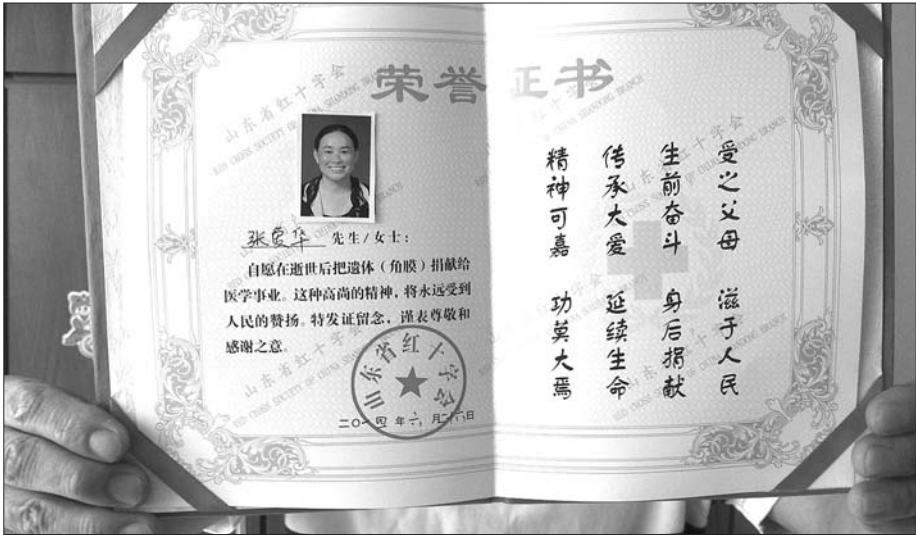 荣誉证书
山东省红十字会
RED CROSS SOCIETY OF CHINA SHANDONG BRANCH
张爱华 先生/女士:
自愿在逝世后把遗体(角膜)捐献给
医学事业。这种高尚的精神,将永远受到
人民的赞扬。特发证留念,谨表尊敬和
感谢之意。
山东省红十字会
二〇一四年六月二十六日
受之父母 滋于人民
生前奋斗 身后捐献
传承大爱 延续生命
精神可嘉 功莫大焉